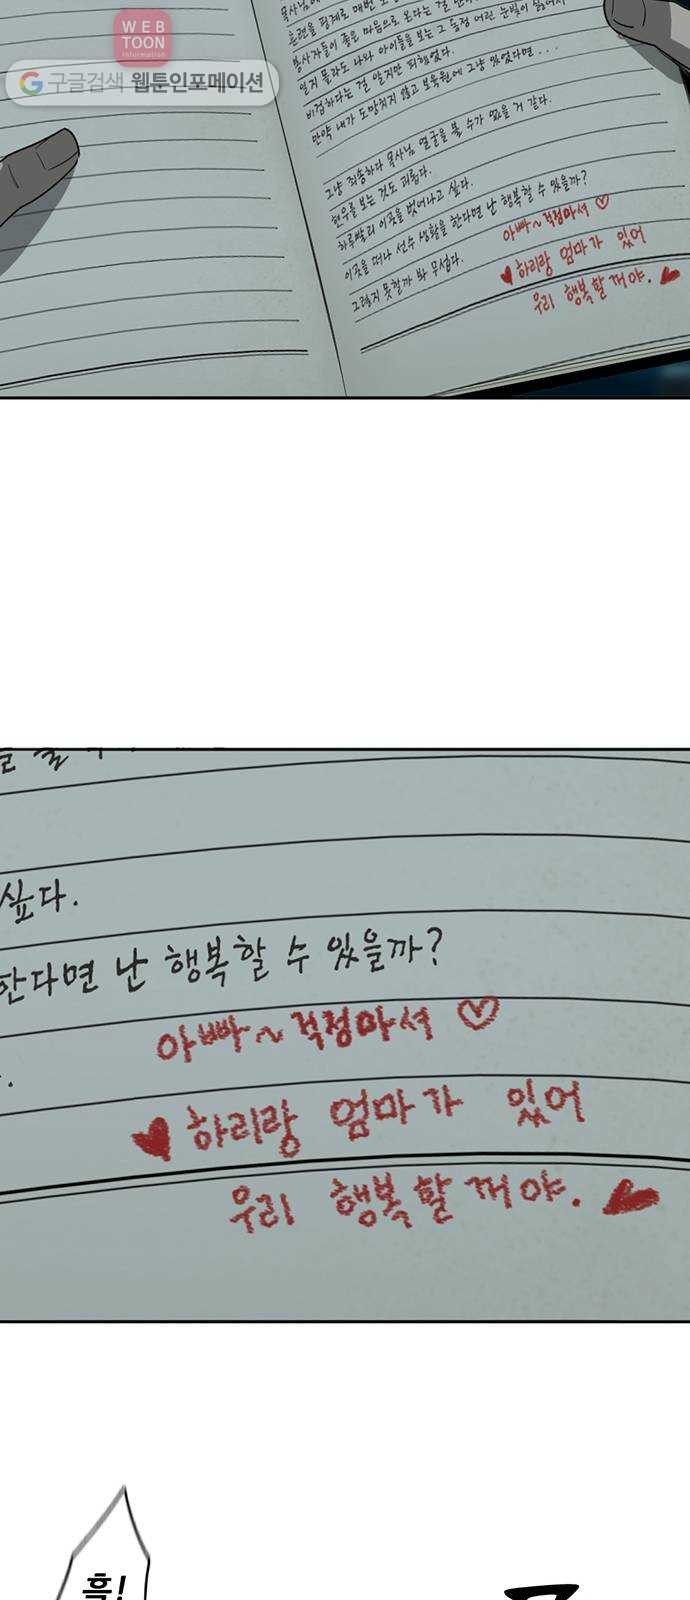 WEB
TOON
INFORMATION
구글검색 웹툰인포메이션
목사님
훈련을 핑계로 매번
봉사자들이 좋은 마음으로 온다는 걸
일지 몰라도 나와 아이들을 보는 그 동정 어린 눈빛이
비겁하다는 걸 알지만 피해왔다.
만약 내가 도망치지 않고 보육원에 그냥 있었다면...
그냥 죄송하다 목사님 얼굴을 볼 수가 없을 거 같다.
현우를 보는 것도 괴롭다.
하루빨리 이곳을 벗어나고 싶다.
이곳을 떠나 선수 생활을 한다면 난 행복할 수 있을까?
그렇지 못할까 봐 무섭다.
아빠~걱정마셔 ♡
♥하리랑 엄마가 있어
우리 행복할꺼야.♥
싶다.
한다면 난 행복할 수 있을까?
아빠~걱정마셔 ♡
♥하리랑 엄마가 있어
우리 행복할꺼야.♥
흑!